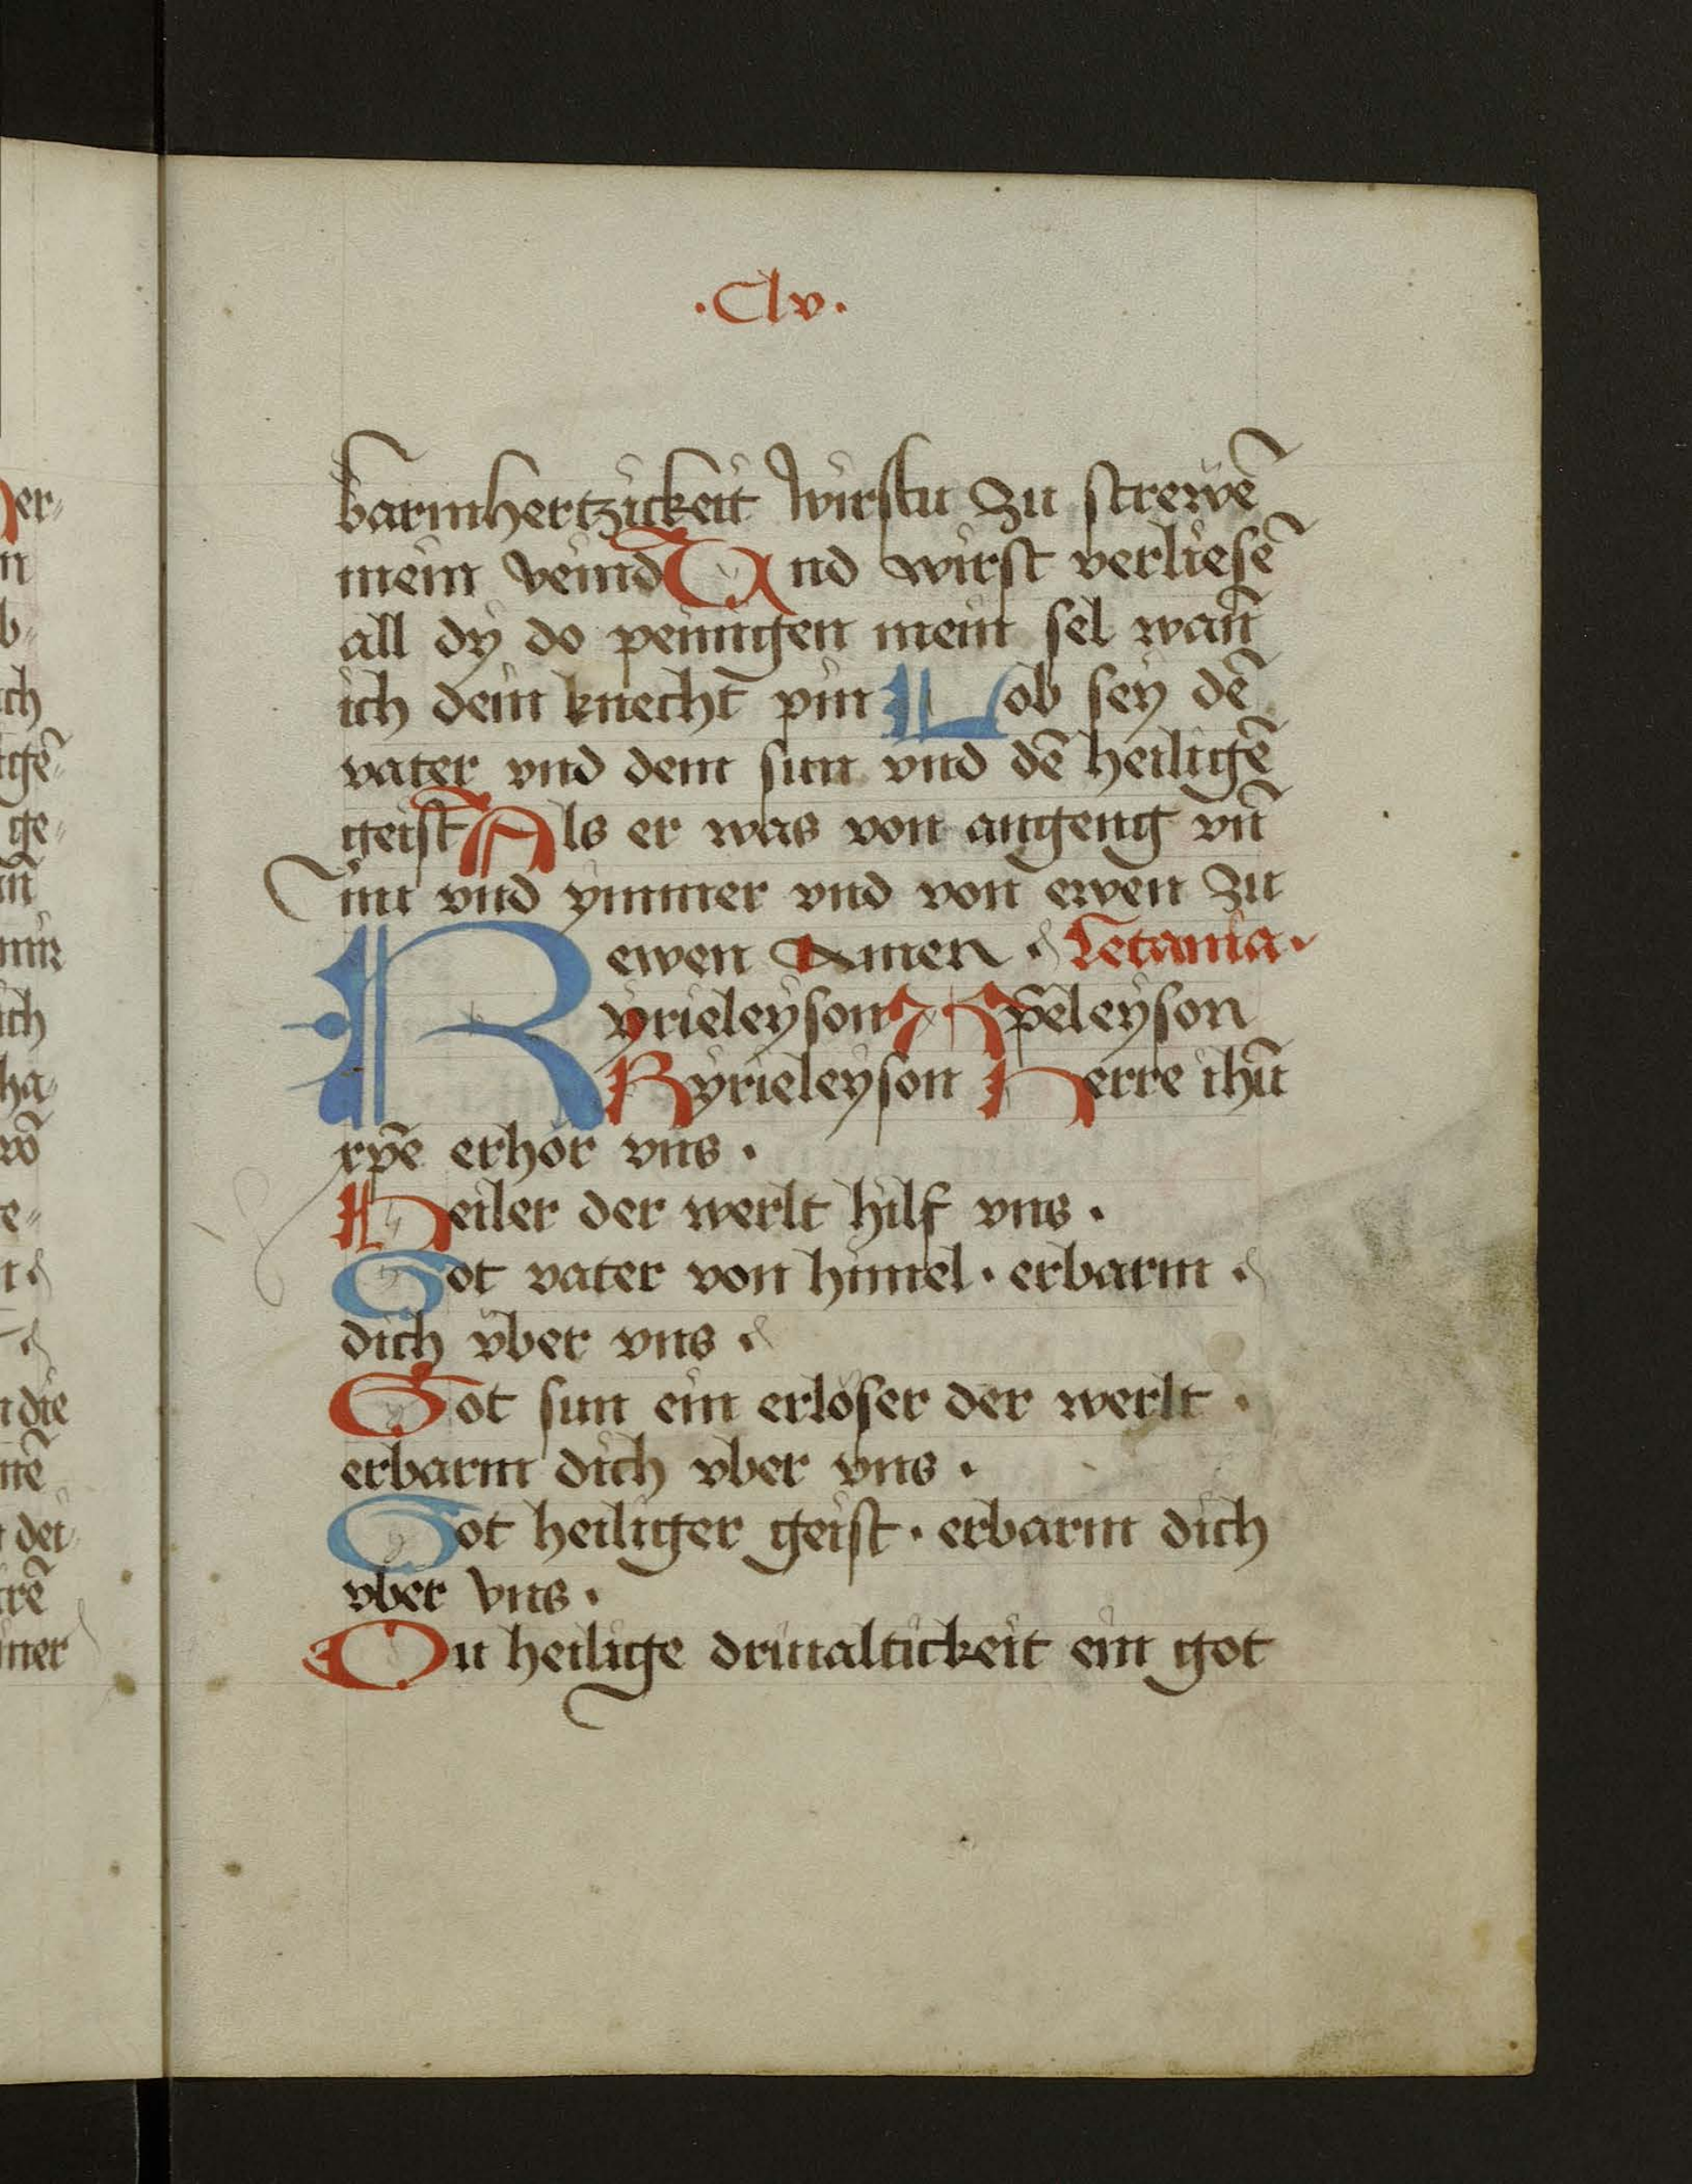 ·Clv·
barmhertzickeit wirstu zu strewē
mein veind Und wirst verliesē
all dy do peinigen mein sel wan̄
ich dein knecht pin Lob sey dē
vater vnd dem sun vnd dē heiligē
geist Als er was von angeng vn̄
nu vnd ymmer vnd von ewen zu
ewen Amen · Letania ·
Kyrieleyson Xp̄eleyson
Kyrieleyson Herre ihū
xp̄e erhör vns ·
Heiler der werlt hilf vns ·
Got vater von himel · erbarm ·
dich vber vns ·
Got sun ein erlöser der werlt ·
erbarm dich vber vns ·
Got heiliger geist · erbarm dich
vber vns ·
Du heilige driualtickeit ein got